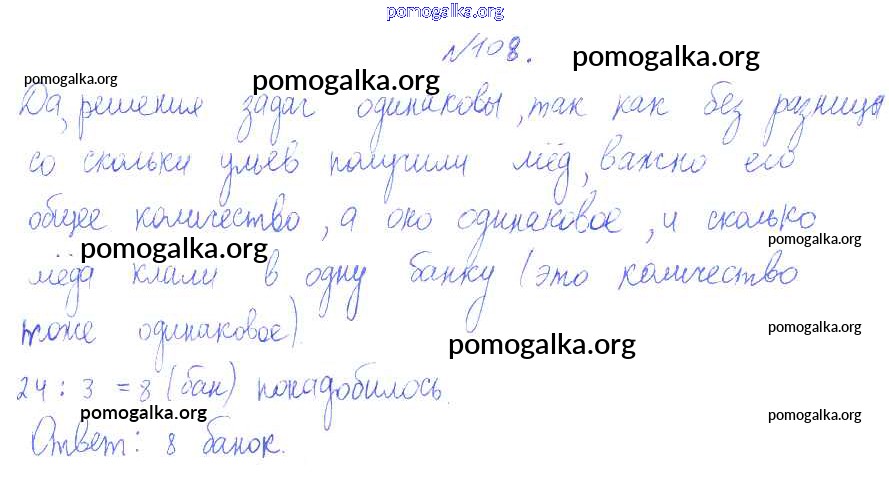 pomogalka.org
№108.
pomogalka.org
pomogalka.org
pomogalka.org
Да, решения задач одинаковы, так как без разницы
со скольки ульев получили мёд, важно его
общее количество, а оно одинаковое, и сколько
pomogalka.org
pomogalka.org
мёда клали в одну банку (это количество
тоже одинаковое)
pomogalka.org
pomogalka.org
24 : 3 = 8 (бан) понадобилось.
pomogalka.org
pomogalka.org
Ответ: 8 банок.